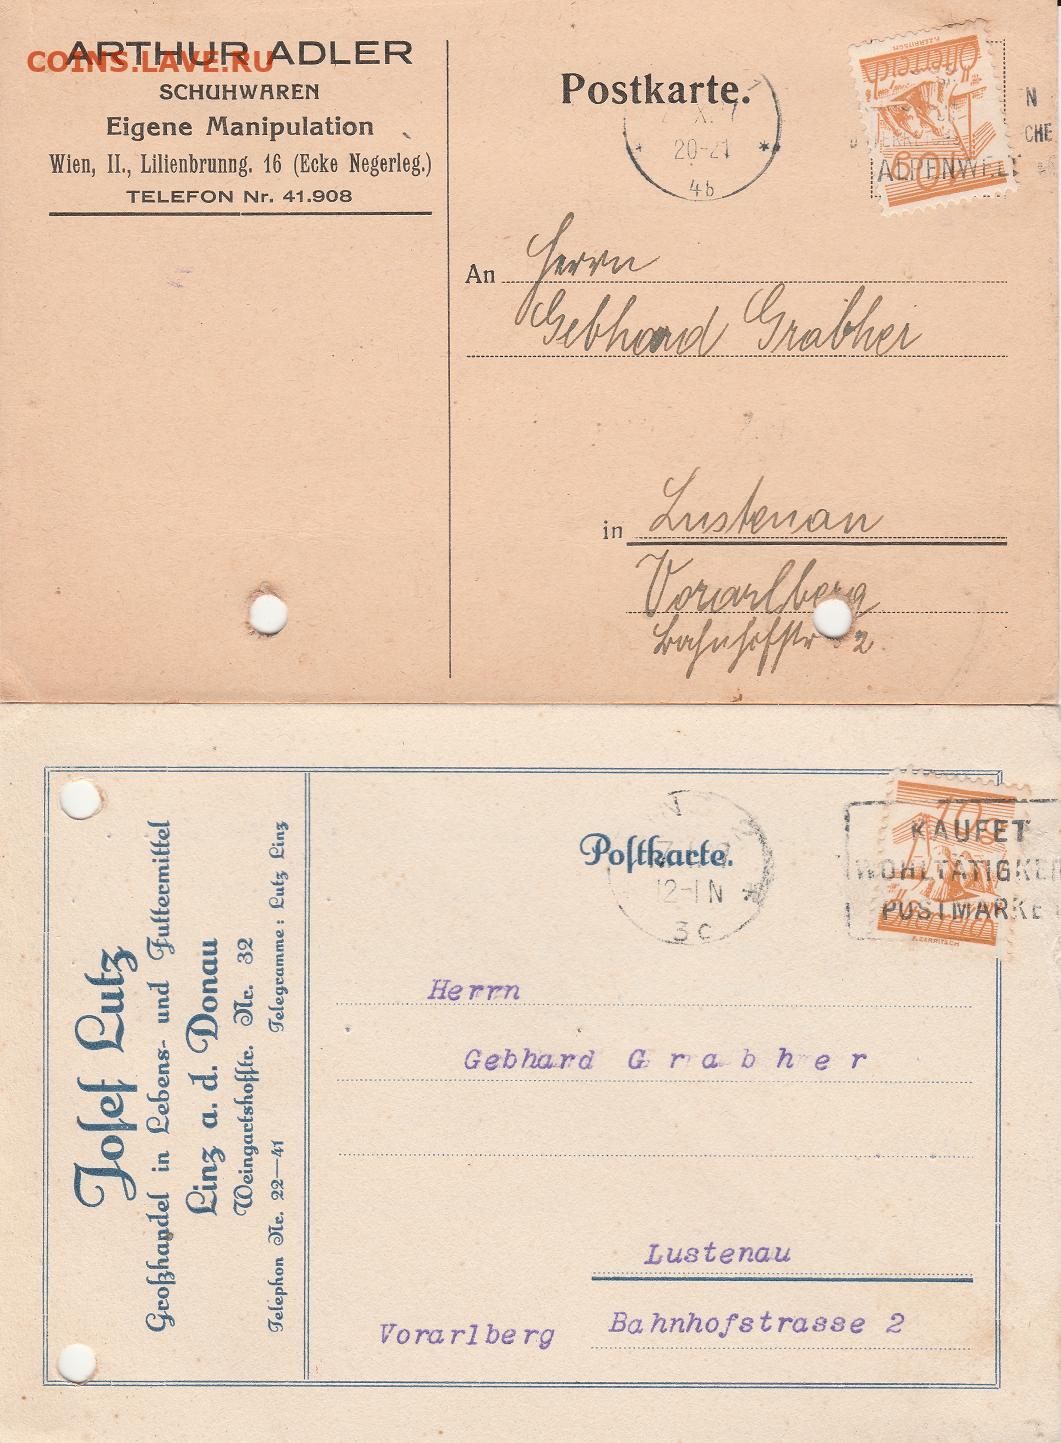 COINS.LAVE.RU
ARTHUR ADLER
SCHUHWAREN
Eigene Manipulation
Wien, II., Lilienbrunng. 16 (Ecke Negerleg.)
TELEFON Nr. 41.908
Postkarte.
20-21
4b
Österreich
10
ALPENWELT
N
CHE
An Herrn
Gebhard Grabher
in Lustenau
Vorarlberg
Bahnhofstr 2.
Josef Lutz
Großhandel in Lebens- und Futtermittel
Linz a. d. Donau
Weingartshofstr. Nr. 32
Telephon Nr. 22—41 Telegramme: Lutz Linz
Postkarte.
12-1N
3c
10
KAUFET
WOHLTÄTIGKEI
POSTMARKE
Österreich
Herrn
Gebhard Grabher
Lustenau
Vorarlberg Bahnhofstrasse 2